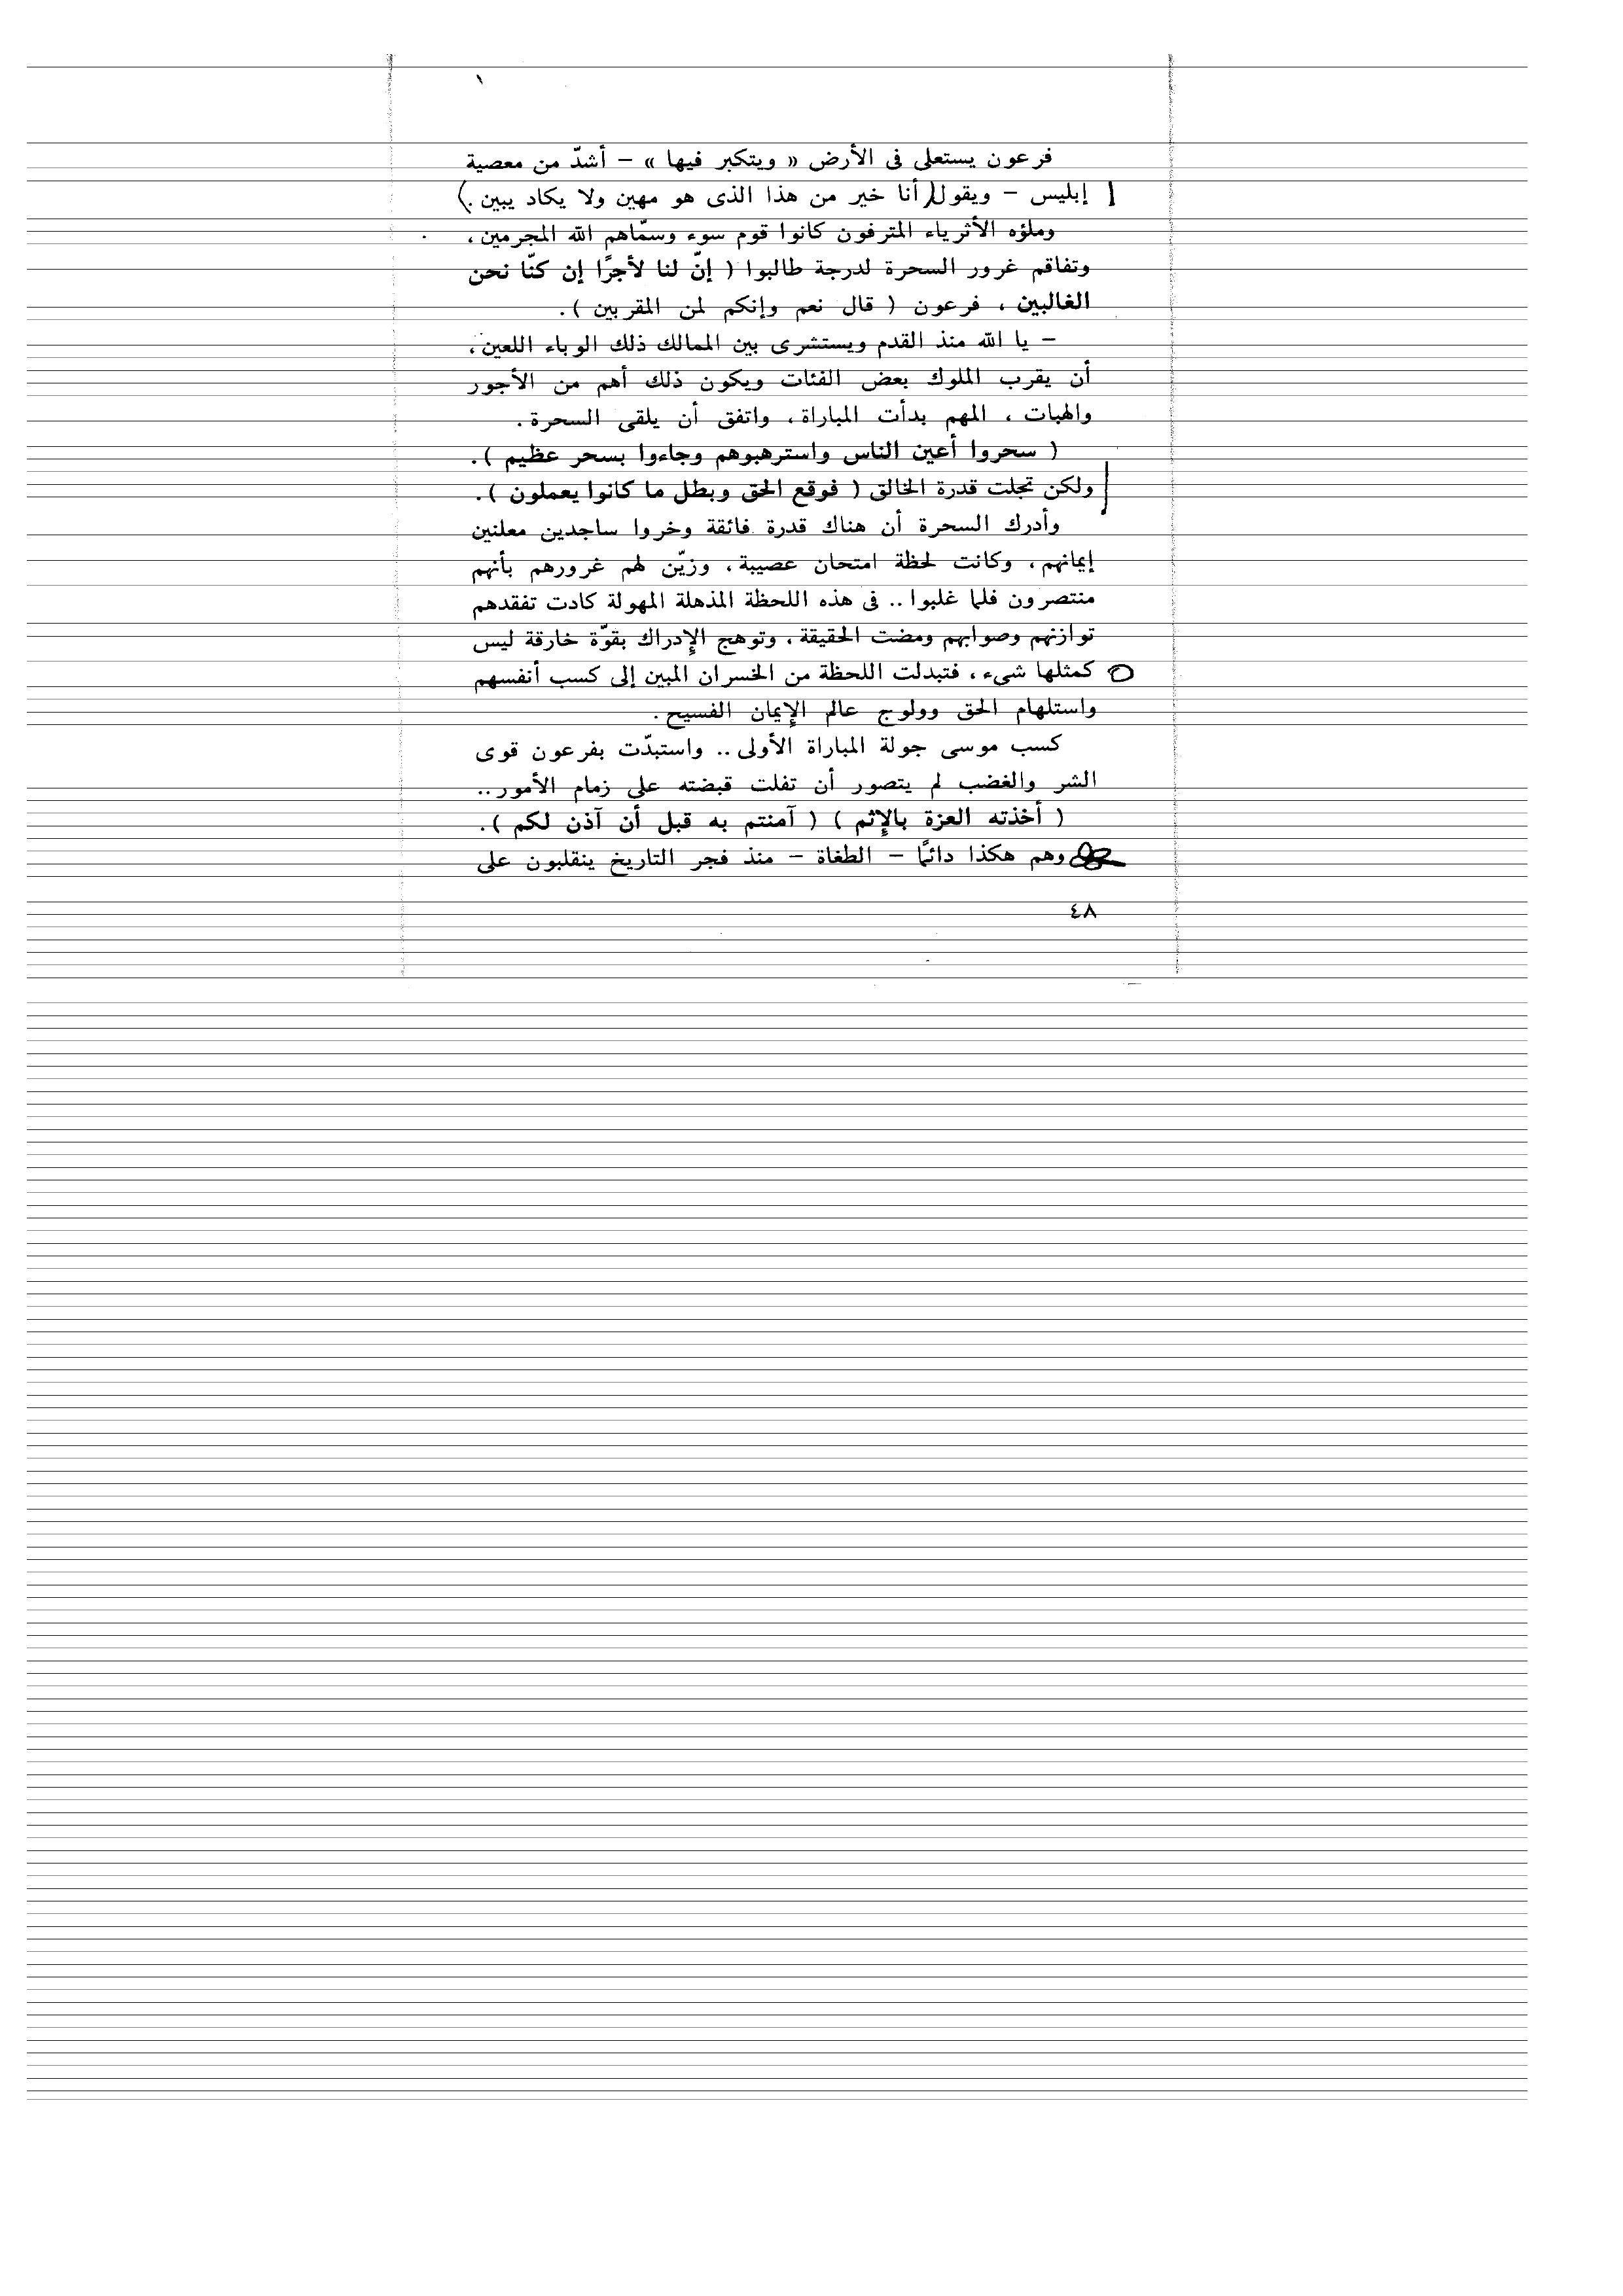 فرعون يستعلى فى الأرض « ويتكبر فيها » – أشدّ من معصية
إبليس – ويقول ( أنا خير من هذا الذى هو مهين ولا يكاد يبين . )
وملؤه الأثرياء المترفون كانوا قوم سوء وسمّاهم الله المجرمين ،
وتفاقم غرور السحرة لدرجة طالبوا ( إنّ لنا لأجرًا إن كنّا نحن
الغالبين ، فرعون ( قال نعم وإنكم لمن المقربين ) .
– يا الله منذ القدم ويستشرى بين الممالك ذلك الوباء اللعين ،
أن يقرب الملوك بعض الفئات ويكون ذلك أهم من الأجور
والهبات ، المهم بدأت المباراة ، واتفق أن يلقى السحرة .
( سحروا أعين الناس واسترهبوهم وجاءوا بسحر عظيم ) .
ولكن تجلت قدرة الخالق ( فوقع الحق وبطل ما كانوا يعملون ) .
وأدرك السحرة أن هناك قدرة فائقة وخروا ساجدين معلنين
إيمانهم ، وكانت لحظة امتحان عصيبة ، وزيّن لهم غرورهم بأنهم
منتصرون فلما غلبوا .. فى هذه اللحظة المذهلة المهولة كادت تفقدهم
توازنهم وصوابهم ومضت الحقيقة ، وتوهج الإدراك بقوّة خارقة ليس
كمثلها شىء ، فتبدلت اللحظة من الخسران المبين إلى كسب أنفسهم
واستلهام الحق وولوج عالم الإيمان الفسيح .
كسب موسى جولة المباراة الأولى .. واستبدّت بفرعون قوى
الشر والغضب لم يتصور أن تفلت قبضته على زمام الأمور ..
( أخذته العزة بالإثم ) ( آمنتم به قبل أن آذن لكم ) .
وهم هكذا دائمًا – الطغاة – منذ فجر التاريخ ينقلبون على
٤٨